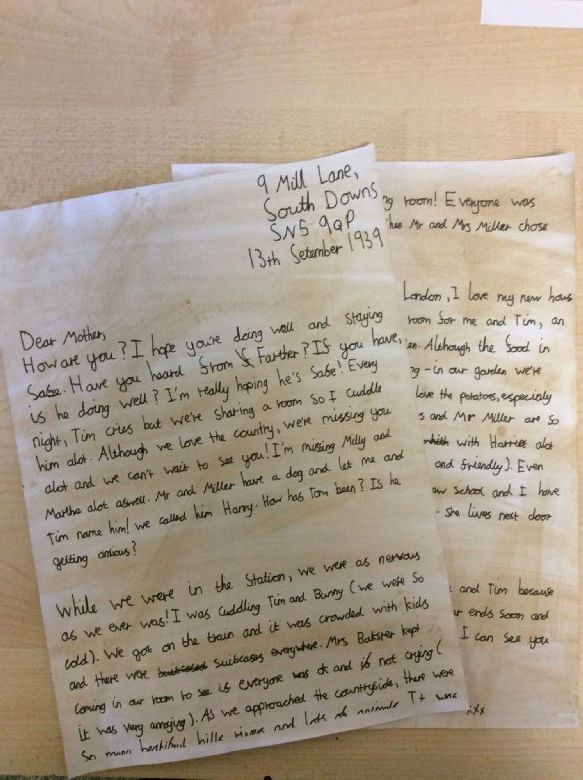 9 Mill Lane,
South Downs
SN5 9QP
13th Setember 1939
Dear Mother,
How are you? I hope you're doing well and staying
safe. Have you heard from Farther? If you have,
is he doing well? I'm really hoping he's safe! Every
night, Tim cries but we're sharing a room so I cuddle
him alot. Although we love the country, we're missing you
alot and we can't wait to see you! I'm missing Milly and
Martha alot aswell. Mr and Miller have a dog and let me and
Tim name him! we called him Harry. How has Tom been? Is he
getting anxious?
While we were in the Station, we were as nervous
as we ever was! I was cuddling Tim and Bunny (we were so
cold). We got on the train and it was crowded with kids
and there were suitcases everywhere. Mrs Bakster kept
coming in our room to see if everyone was ok and is not crying (
it was very annoying). As we approached the countryside, there were
so many beautiful hills and lots of animals It was
ng room! Everyone was
Mr and Mrs Miller chose
London, I love my new hous
room for me and Tim, an
en. Although the food in
ng - in our garden we're
love the potatoes, especially
s and Mr Miller are so
with Harriet alot
and friendly). Even
ew school and I have
- She lives next door
and Tim because
r ends soon and
I can see you
xx